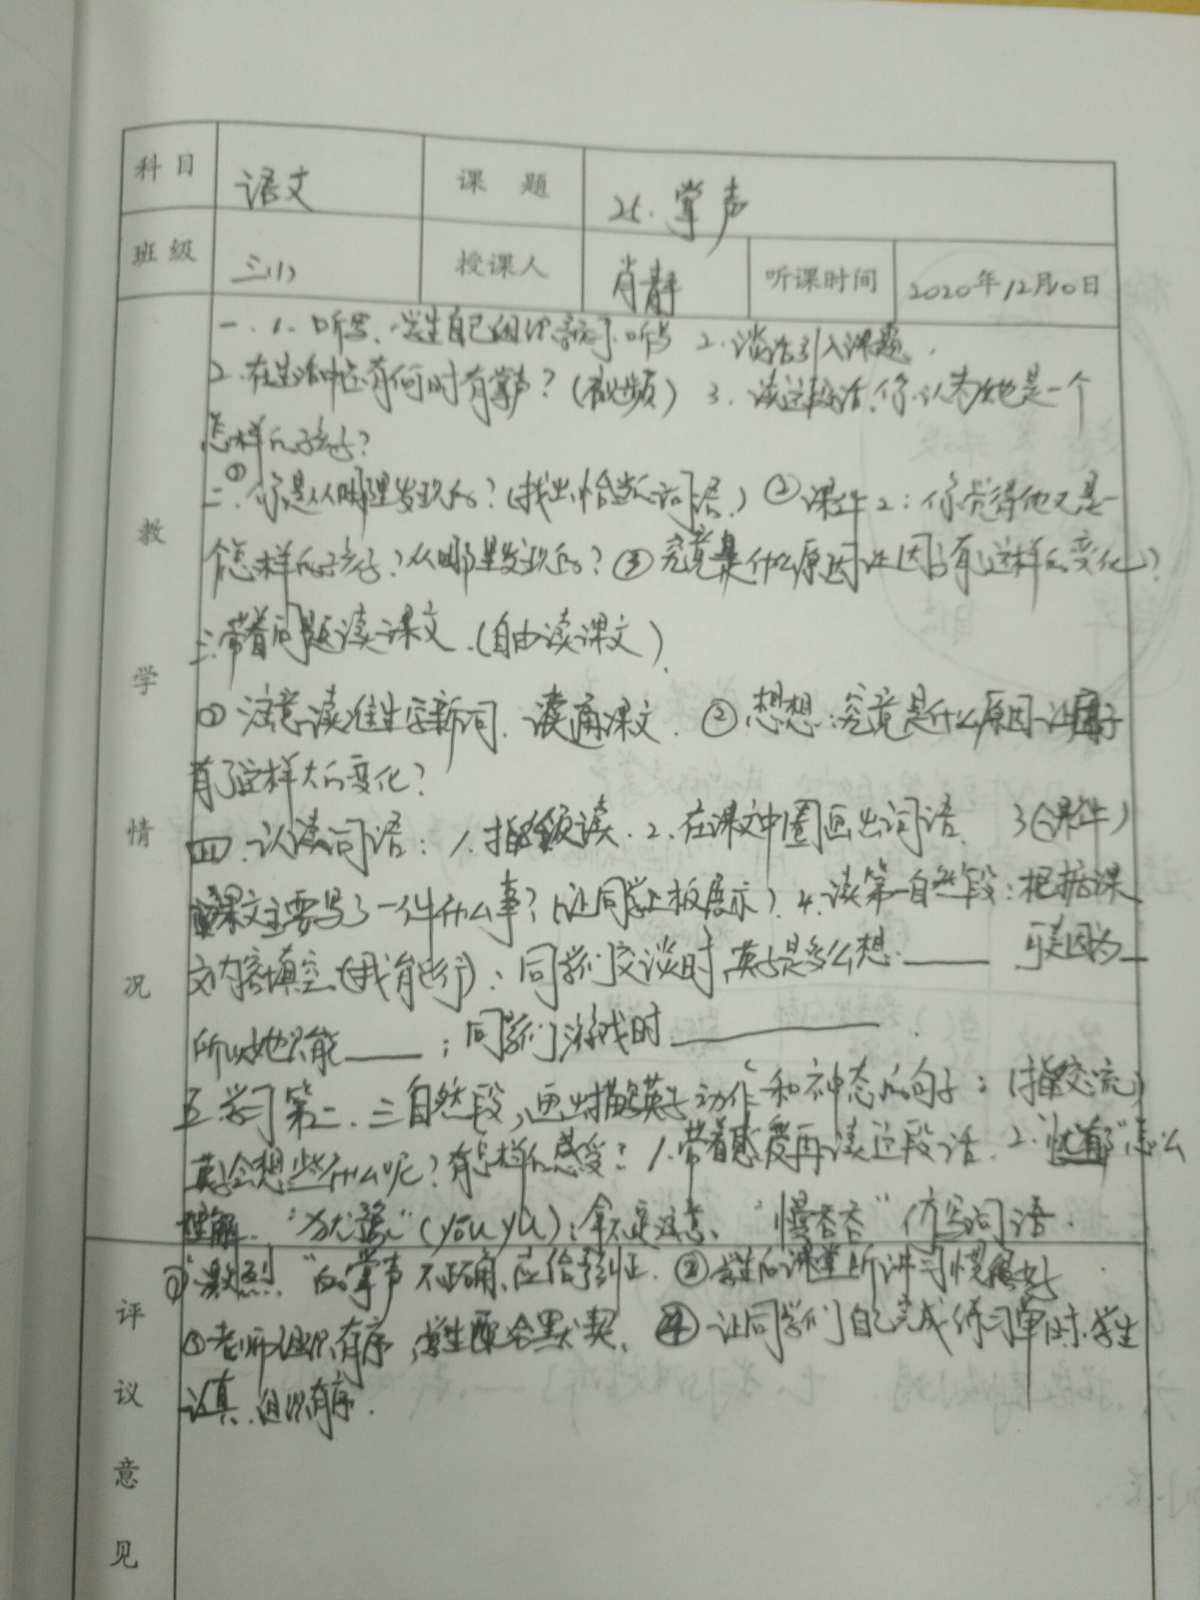 科目 语文 课题 25. 掌声
班级 三(1) 授课人 肖静 听课时间 2020年12月10日
一、1. 听写、学生自己组织亲子听写 2. 谈话引入课题.
2. 在生活中还有何时有掌声?(视频) 3. 读这段话,你认为她是一个
怎样的孩子?
二、①你是从哪里发现的?(找出恰当的词语.) ②课件2:你觉得他又是一
个怎样的孩子?从哪里发现的?③究竟是什么原因让英子有这样的变化?
三、带着问题读课文.(自由读课文)
① 注意读准生字新词、读通课文. ②想想:究竟是什么原因让英子
有了这样大的变化?
四、认读词语:1. 指名领读. 2. 在课文中圈画出词语. 3(课件)
课文主要写了一件什么事?(让同学上板展示). 4. 读第一自然段:根据课
文内容填空.(我能行):同学们交谈时,英子是多么想:____ 可是因为__
所以她只能____;同学们游戏时________.
五、学习第二、三自然段,画出描写英子动作和神态的句子:(指名交流)
英子会想些什么呢?有怎样的感受?1. 带着感受再读这段话. 2. “忧郁”怎么
理解. “犹豫”(yóu yù):拿不定主意、“慢吞吞”仿写词语.
①“激烈”的掌声不正确,应给予纠正. ②学生的课堂听讲习惯很好
③老师组织有序,学生配合默契. ④让同学们自己完成练习单时,学生
认真、组织有序.
教学情况
评议意见